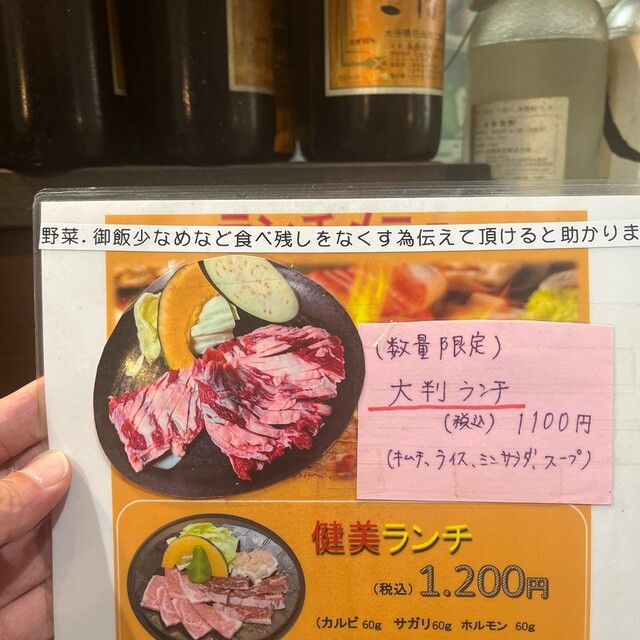 野菜.御飯少なめなど食べ残しをなくす為伝えて頂けると助かりま
(数量限定)
大判ランチ
(税込) 1100円
(キムチ、ライス、ミニサラダ、スープ)
健美ランチ
(税込) 1.200円
(カルビ 60g サガリ60g ホルモン 60g